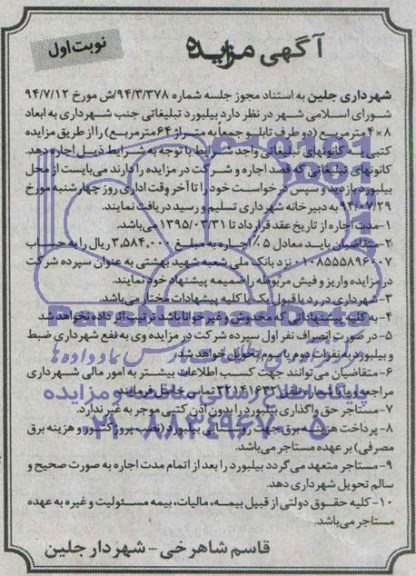 آگهی مزایده
نوبت اول
شهرداری جلین به استناد مجوز جلسه شماره ۹۴/۳/۳۷۸/ش مورخ ۹۴/۷/۱۲
شورای اسلامی شهر در نظر دارد بیلبورد تبلیغاتی جنب شهرداری به ابعاد
۸×۴ مترمربع (دو طرف تابلو جمعاً به متراژ ۶۴ مترمربع) را از طریق مزایده
کتبی به کانونهای تبلیغاتی واجد شرایط با توجه به شرایط ذیل اجاره دهد.
کانونهای تبلیغاتی که قصد اجاره و شرکت در مزایده را دارند می‌بایست از محل
بیلبورد بازدید و سپس درخواست خود را تا آخر وقت اداری روز چهارشنبه مورخ
۹۴/۰۷/۲۹ به دبیرخانه شهرداری تسلیم و رسید دریافت نمایند.
۱-مدت اجاره از تاریخ عقد قرارداد تا ۱۳۹۵/۰۳/۳۱ می‌باشد.
۲-متقاضیان باید معادل ۵٪ اجاره به مبلغ ۳,۵۸۴,۰۰۰ ریال را به حساب
۰۱۰۸۵۵۵۸۹۶۰۰۷ نزد بانک ملی شعبه شهید بهشتی به عنوان سپرده شرکت
در مزایده واریز و فیش مربوطه را ضمیمه پیشنهاد خود نمایند.
۳-شهرداری در رد یا قبول یک یا کلیه پیشهادات مختار می‌باشد.
۴-به کلیه پیشنهاداتی که مخدوش و غیرخوانا باشد ترتیب اثر داده نخواهد شد
۵-در صورت انصراف نفر اول سپرده شرکت در مزایده وی به نفع شهرداری ضبط
و بیلبورد به نفرات دوم یا سوم تحویل خواهد شد.
۶-متقاضیان می توانند جهت کسب اطلاعات بیشتر به امور مالی شهرداری
مراجعه و یا با شماره تلفن ۳۲۱۴۱۶۳۲ تماس حاصل فرمایند.
۷-مستاجر حق واگذاری بیلبورد را بدون اذن کتبی موجر به غیر ندارد.
۸-پرداخت هزینه برق جهت روشنایی بیلبورد (نصب پروژکتور و هزینه برق
مصرفی) بر عهده مستاجر می‌باشد.
۹-مستاجر متعهد می‌گردد بیلبورد را بعد از اتمام مدت اجاره به صورت صحیح و
سالم تحویل شهرداری دهد.
۱۰-کلیه حقوق دولتی از قبیل بیمه، مالیات، بیمه مسئولیت و غیره به عهده
مستاجر می‌باشد.
قاسم شاهرخی - شهردار جلین
ParsNamadData
پایگاه اطلاع رسانی مناقصه و مزایده
۰۲۱-۸۸۳۴۹۶۷۰-۵